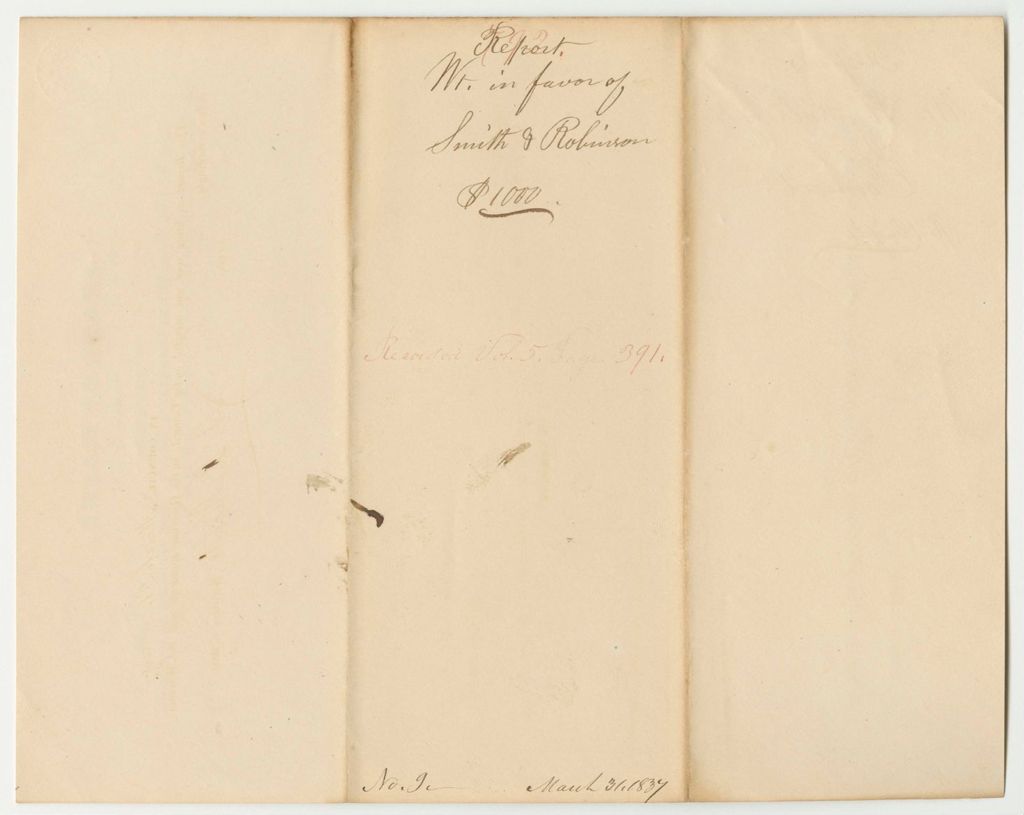 Report.
Wt. in favor of
Smith & Robinson
$1000.
Recorded Vol. 5. Page 391.
No. 9.
March 31. 1837